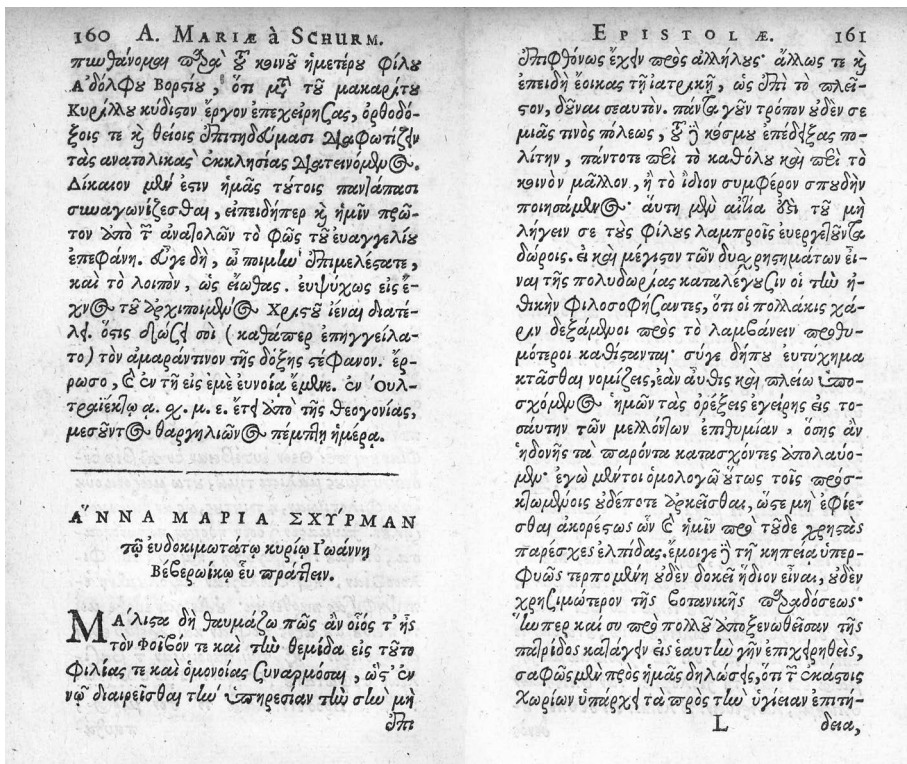 160 A. MARIÆ à SCHURM.
πυνθάνομαι παρὰ τοῦ κοινοῦ ἡμετέρου φίλου
Ἀδόλφου Βορςίου, ὅτι μετὰ τοῦ μακαρίτου
Κυρίλλου κύδιστον ἔργον ἐπεχείρησας, ὀρθοδό-
ξοις τε καὶ θείοις ἐπιτηδεύμασι διαφωτίζειν
τὰς ἀνατολικὰς ἐκκλησίας διατεινόμενος.
Δίκαιον μέν ἐστιν ἡμᾶς τούτοις παντάπασι
συναγωνίζεσθαι, εἰπειδήπερ καὶ ἡμῖν πρῶ-
τον ὑπὸ τῶν ἀνατολῶν τὸ φῶς τοῦ εὐαγγελίου
ἐπεφάνη. εὖγε δὴ, ὦ ποιμὴν ἐπιμελέστατε,
καὶ τὸ λοιπὸν, ὡς εἴωθας. εὐψύχως εἰς ἔ-
χνος τοῦ ἀρχιποιμένος Χριστοῦ ἰέναι διατέ-
λει. ὅστις σώζει σοὶ (καθάπερ ἐπηγγείλα-
το) τὸν ἀμαράντινον τῆς δόξης στέφανον. ἔρ-
ρωσο, καὶ ἐν τῇ εἰς ἐμὲ εὐνοίᾳ ἔμμενε. ἐν Οὐλ-
τραϊέκτῳ α. χ. μ. ε. ἔτει ἀπὸ τῆς θεογονίας,
μεσοῦντος θαργηλιῶνος πέμπτῃ ἡμέρᾳ.
ἌΝΝΑ ΜΑΡΙΑ ΣΧΥΡΜΑΝ
τῷ εὐδοκιμοτάτῳ κυρίῳ Ἰωάννῃ
Βεβερωίκῳ εὖ πράττειν.
Μάλιστα δὴ θαυμάζω πῶς ἂν οἷός τ' ᾖς
τὸν Φοῖβόν τε καὶ τὴν θεμίδα εἰς τοῦτο
φιλίας τε καὶ ὁμονοίας συναρμόσαι, ὥς τ' ἐν
νῷ διαιρεῖσθαι τὴν ὑπηρεσίαν τὴν σὴν μὴ
ἐπι
EPISTOLÆ. 161
ἐπιφθόνως ἔχειν πρὸς ἀλλήλους. ἄλλως τε καὶ
ἐπειδὴ ἔοικας τῇ ἰατρικῇ, ὡς ἐπὶ τὸ πλεῖ-
στον, δοῦναι σεαυτὸν. πάντα γοῦν τρόπον οὐδέν σε
μιᾶς τινὸς πόλεως, τοῦ δὲ κόσμου ἐπέδειξας πο-
λίτην, πάντοτε περὶ τὸ καθόλου καὶ περὶ τὸ
κοινὸν μᾶλλον, ἢ τὸ ἴδιον συμφέρον σπουδὴν
ποιησάμενος· αὕτη μὲν αἰτία ἐστὶ τοῦ μὴ
λήγειν σε τοὺς φίλους λαμπροῖς εὐεργετοῦντα
δώροις. εἰ καὶ μέγιστον τῶν δυσχρησημάτων εἶ-
ναι τῆς πολυδωρίας καταλέγουσιν οἱ τὴν ἠ-
θικὴν φιλοσοφήσαντες, ὅτι οἱ πολλάκις χά-
ριν δεξάμενοι πρὸς τὸ λαμβάνειν προθυ-
μότεροι καθίστανται· σύγε δήπου εὐτύχημα
κτᾶσθαι νομίζεις, ἐὰν αὖθις καὶ πλείω ὑπο-
σχόμενος ἡμῶν τὰς ὀρέξεις ἐγείρῃς εἰς το-
σαύτην τῶν μελλόντων ἐπιθυμίαν, ὅσης ἂν
ἡδονῆς τὰ παρόντα κατασχόντες ἀπολαύο-
μεν· ἐγὼ μέντοι ὁμολογῶ οὕτως τοῖς πρόσ-
κτωμένοις οὐδέποτε ἀρκεῖσθαι, ὥστε μὴ ἐφίε-
σθαι ἀκορέστως ὧν καὶ ἡμῖν πρὸ τοῦδε χρηστὰς
παρέσχες ἐλπίδας. ἔμοιγε δὲ τῇ κηπείᾳ ὑπερ-
φυῶς τερπομένῃ οὐδὲν δοκεῖ ἥδιον εἶναι, οὐδὲν
χρησιμώτερον τῆς βοτανικῆς παραδόσεως·
ἥνπερ καὶ συ πρὸ πολλοῦ ἀποξενωθεῖσαν τῆς
πατρίδος κατάγειν εἰς ἑαυτὴν γῆν ἐπιχειρηθεὶς,
σαφῶς μὲν πρὸς ἡμᾶς δηλώσεις, ὅτι τῶν ἑκάστοις
χωρίων ὑπάρχει τὰ πρὸς τὴν ὑγίειαν ἐπιτή-
L δεια,